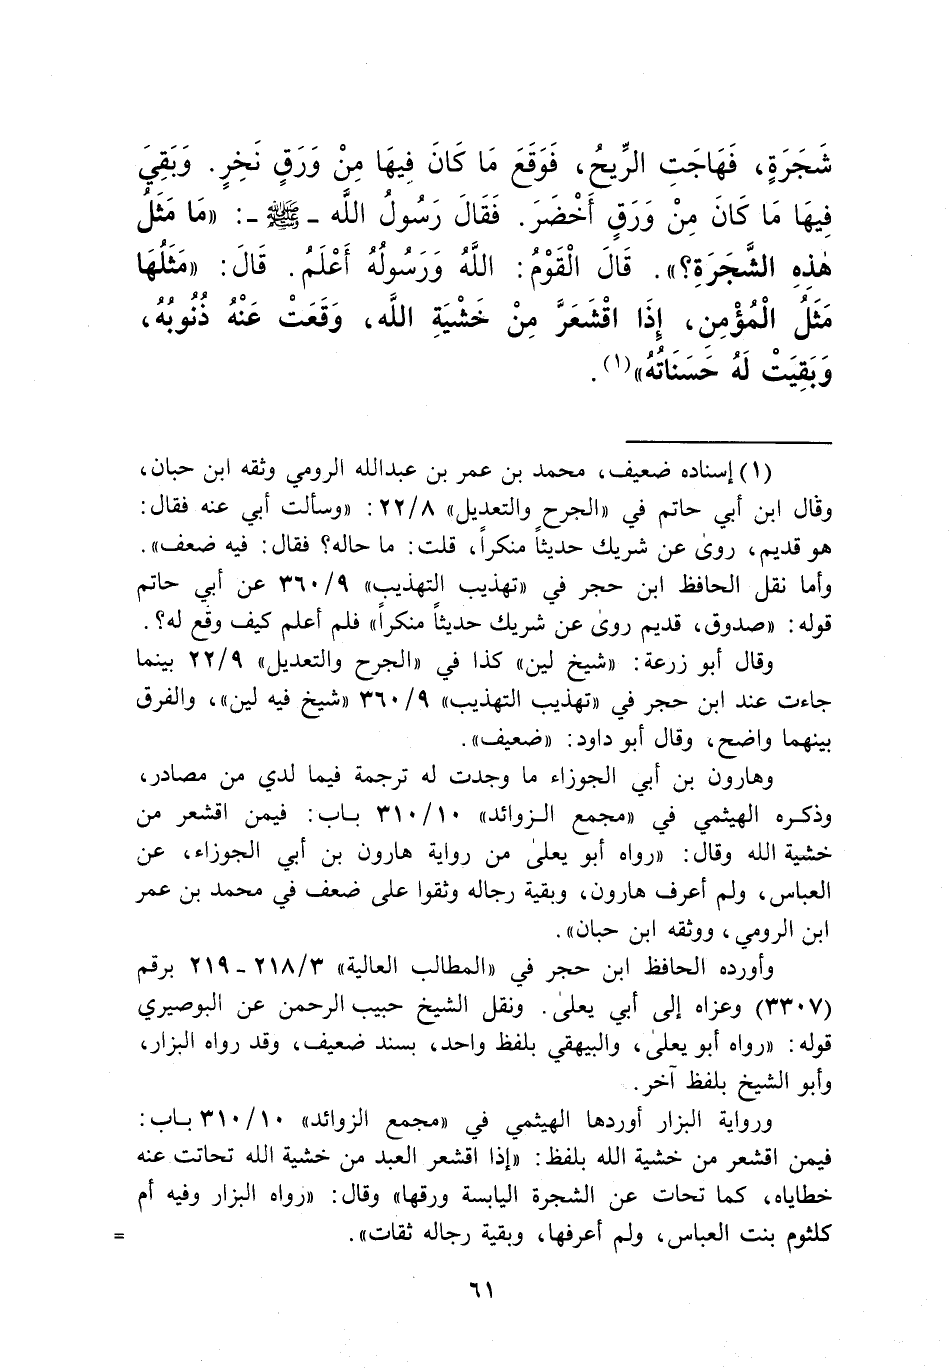 شَجَرَةٍ، فَهَاجَتِ الرِّيحُ، فَوَقَعَ مَا كَانَ فِيهَا مِنْ وَرَقٍ نَخِرٍ. وَبَقِيَ
فِيهَا مَا كَانَ مِنْ وَرَقٍ أَخْضَرَ. فَقَالَ رَسُولُ اللَّه ـ ﷺ ـ: «مَا مَثَلُ
هٰذِهِ الشَّجَرَةِ؟». قَالَ الْقَوْمُ: اللَّهُ وَرَسُولُهُ أَعْلَمُ. قَالَ: «مَثَلُهَا
مَثَلُ الْمُؤْمِنِ، إِذَا اقْشَعَرَّ مِنْ خَشْيَةِ اللَّه، وَقَعَتْ عَنْهُ ذُنُوبُهُ،
وَبَقِيَتْ لَهُ حَسَنَاتُهُ»(١).
(١) إسناده ضعيف، محمد بن عمر بن عبدالله الرومي وثقه ابن حبان،
وقال ابن أبي حاتم في «الجرح والتعديل» ٢٢/٨: «وسألت أبي عنه فقال:
هو قديم، روىٰ عن شريك حديثاً منكراً، قلت: ما حاله؟ فقال: فيه ضعف».
وأما نقل الحافظ ابن حجر في «تهذيب التهذيب» ٣٦٠/٩ عن أبي حاتم
قوله: «صدوق، قديم روىٰ عن شريك حديثاً منكراً» فلم أعلم كيف وقع له؟.
وقال أبو زرعة: «شيخ لين» كذا في «الجرح والتعديل» ٢٢/٩ بينما
جاءت عند ابن حجر في «تهذيب التهذيب» ٣٦٠/٩ «شيخ فيه لين»، والفرق
بينهما واضح، وقال أبو داود: «ضعيف».
وهارون بن أبي الجوزاء ما وجدت له ترجمة فيما لدي من مصادر،
وذكره الهيثمي في «مجمع الزوائد» ٣١٠/١٠ باب: فيمن اقشعر من
خشية الله وقال: «رواه أبو يعلىٰ من رواية هارون بن أبي الجوزاء، عن
العباس، ولم أعرف هارون، وبقية رجاله وثقوا على ضعف في محمد بن عمر
ابن الرومي، ووثقه ابن حبان».
وأورده الحافظ ابن حجر في «المطالب العالية» ٢١٨/٣ ـ ٢١٩ برقم
(٣٣٠٧) وعزاه إلى أبي يعلىٰ. ونقل الشيخ حبيب الرحمن عن البوصيري
قوله: «رواه أبو يعلىٰ، والبيهقي بلفظ واحد، بسند ضعيف، وقد رواه البزار،
وأبو الشيخ بلفظ آخر.
ورواية البزار أوردها الهيثمي في «مجمع الزوائد» ٣١٠/١٠ باب:
فيمن اقشعر من خشية الله بلفظ: «إذا اقشعر العبد من خشية الله تحاتت عنه
خطاياه، كما تحات عن الشجرة اليابسة ورقها» وقال: «رواه البزار وفيه أم
كلثوم بنت العباس، ولم أعرفها، وبقية رجاله ثقات». =
٦١